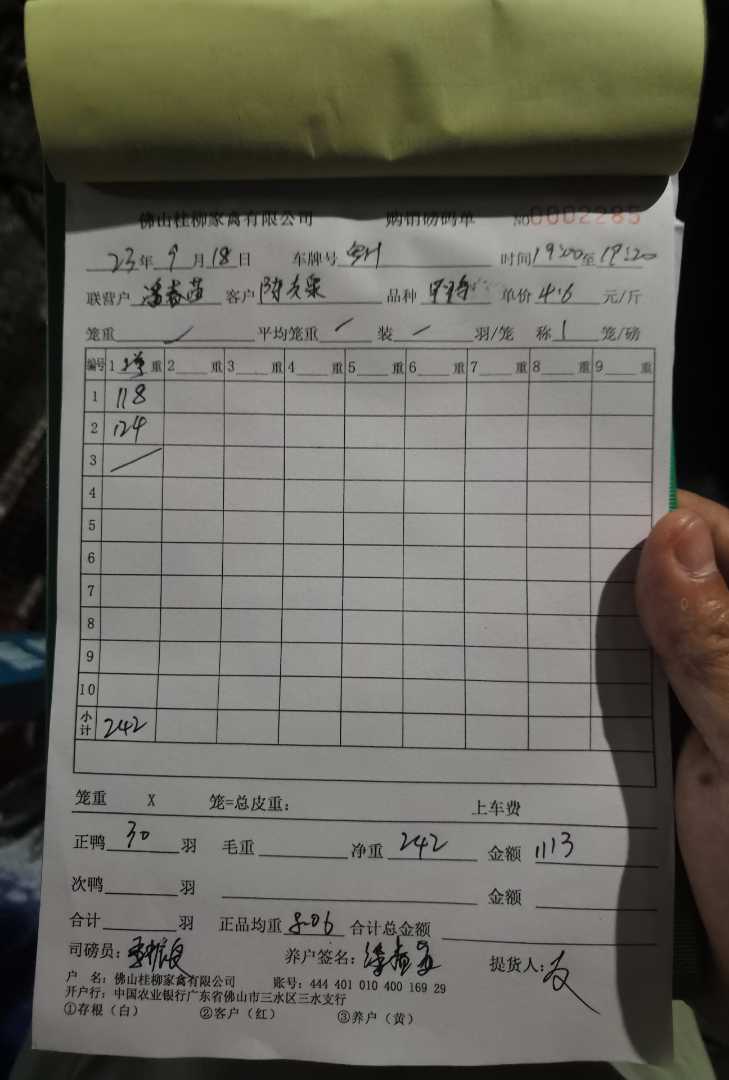 佛山桂柳家禽有限公司 购销磅码单 NO0002285
23年9月18日 车牌号 时间19:00至19:20
联营户 客户 品种 单价4.6元/斤
笼重 平均笼重 装 羽/笼 称1笼/磅
编号 1 重 2 重 3 重 4 重 5 重 6 重 7 重 8 重 9 重
1 118
2 124
3
4
5
6
7
8
9
10
小计 242
笼重 X 笼=总皮重: 上车费
正鸭30羽 毛重 净重242 金额1113
次鸭 羽 金额
合计 羽 正品均重8.06 合计总金额
司磅员: 养户签名: 提货人:
户 名: 佛山桂柳家禽有限公司 账号: 444 401 010 400 169 29
开户行: 中国农业银行广东省佛山市三水区三水支行
①存根（白） ②客户（红） ③养户（黄）